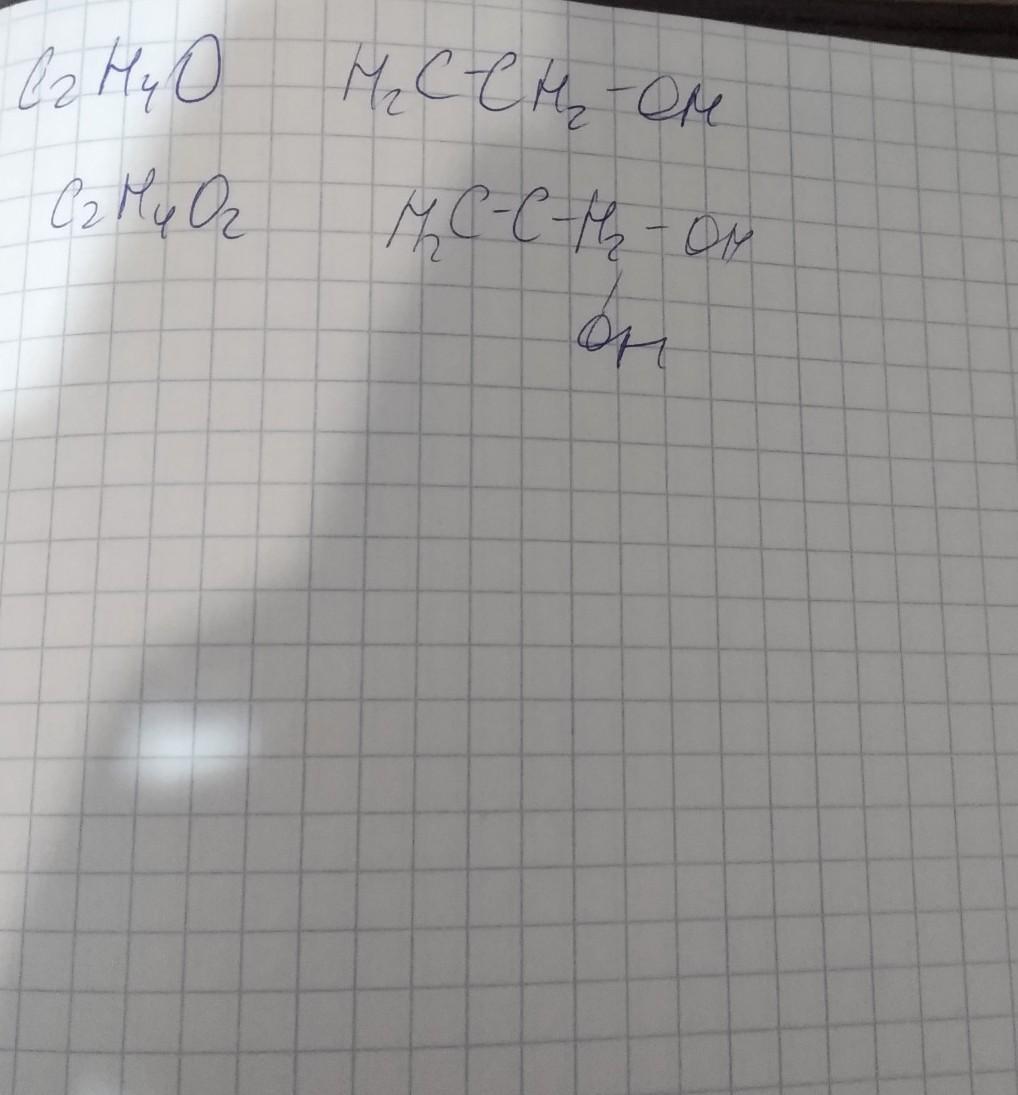 C₂H₄O H₂C-CH₂-OH
C₂H₄O₂ H₂C-C-H₂-OH
OH